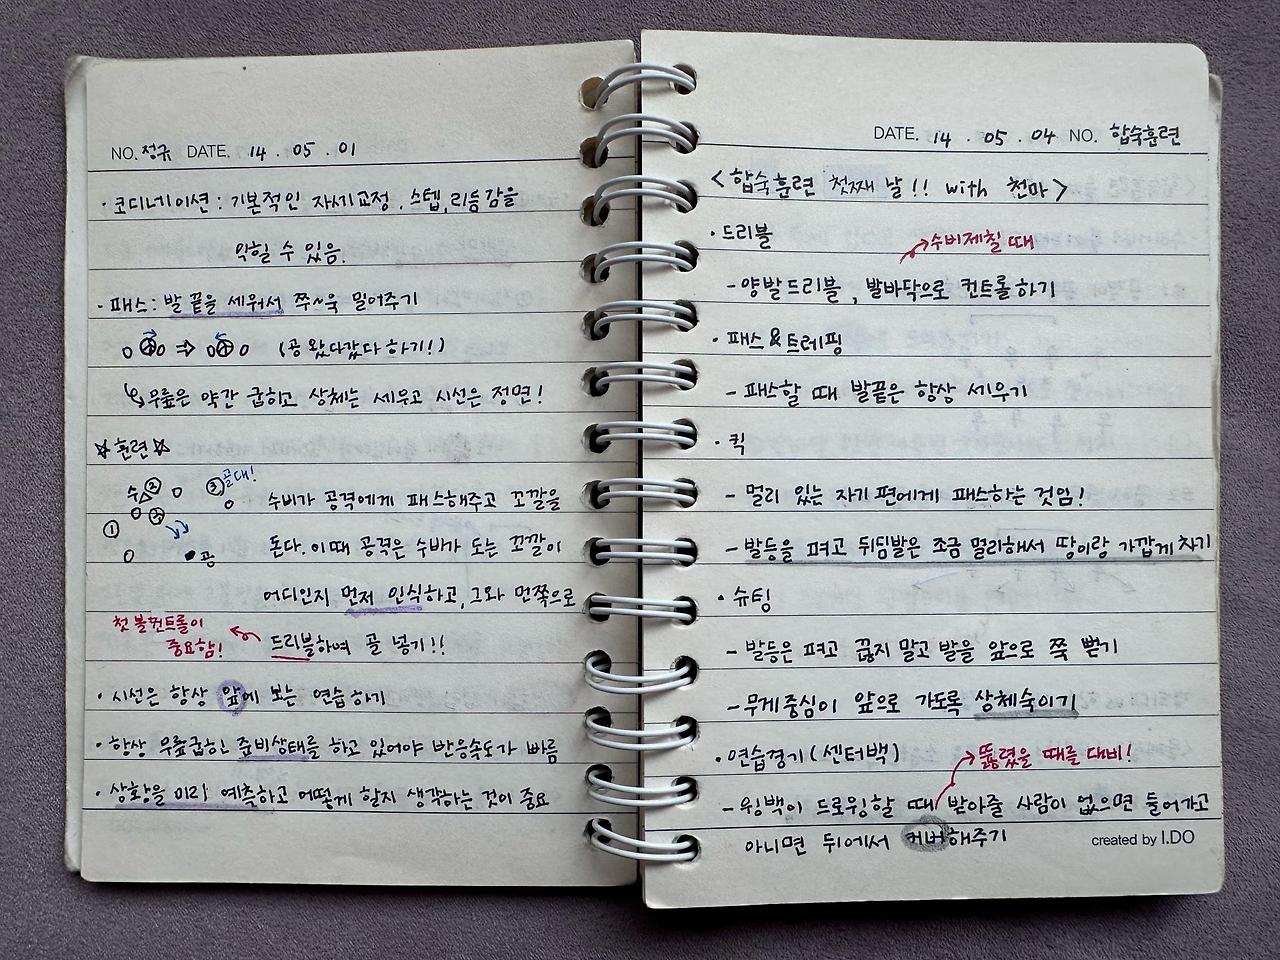 NO. 정규 DATE. 14 . 05 . 01
· 코디네이션 : 기본적인 자세교정. 스텝, 리듬감을
익힐 수 있음.
· 패스 : 발 끝을 세워서 쭈~욱 밀어주기
(공 왔다갔다 하기!)
무릎은 약간 굽히고 상체는 세우고 시선은 정면!
☆훈련☆
수 ② ③ 골대!
① 공
수비가 공격에게 패스해주고 꼬깔을
돈다. 이때 공격은 수비가 도는 꼬깔이
어디인지 먼저 인식하고, 그와 먼쪽으로
첫 볼컨트롤이
중요함!
드리블하여 골 넣기!!
· 시선은 항상 앞에 보는 연습하기
· 항상 무릎굽히고 준비상태를 하고 있어야 반응속도가 빠름
· 상황을 미리 예측하고 어떻게 할지 생각하는 것이 중요
DATE. 14 . 05 . 04 NO. 합숙훈련
<합숙훈련 첫째 날!! with 천마>
· 드리블
수비제칠 때
- 양발드리블, 발바닥으로 컨트롤하기
· 패스&트레핑
- 패스할 때 발끝은 항상 세우기
· 킥
- 멀리 있는 자기편에게 패스하는 것임!
- 발등을 펴고 뒤딤발은 조금 멀리해서 땅이랑 가깝게 차기
· 슈팅
- 발등은 펴고 끊지 말고 발을 앞으로 쭉 뻗기
- 무게중심이 앞으로 가도록 상체숙이기
· 연습경기(센터백)
뚫렸을 때를 대비!
- 윙백이 드로윙할 때 받아줄 사람이 없으면 들어가고
아니면 뒤에서 커버해주기
created by I.DO